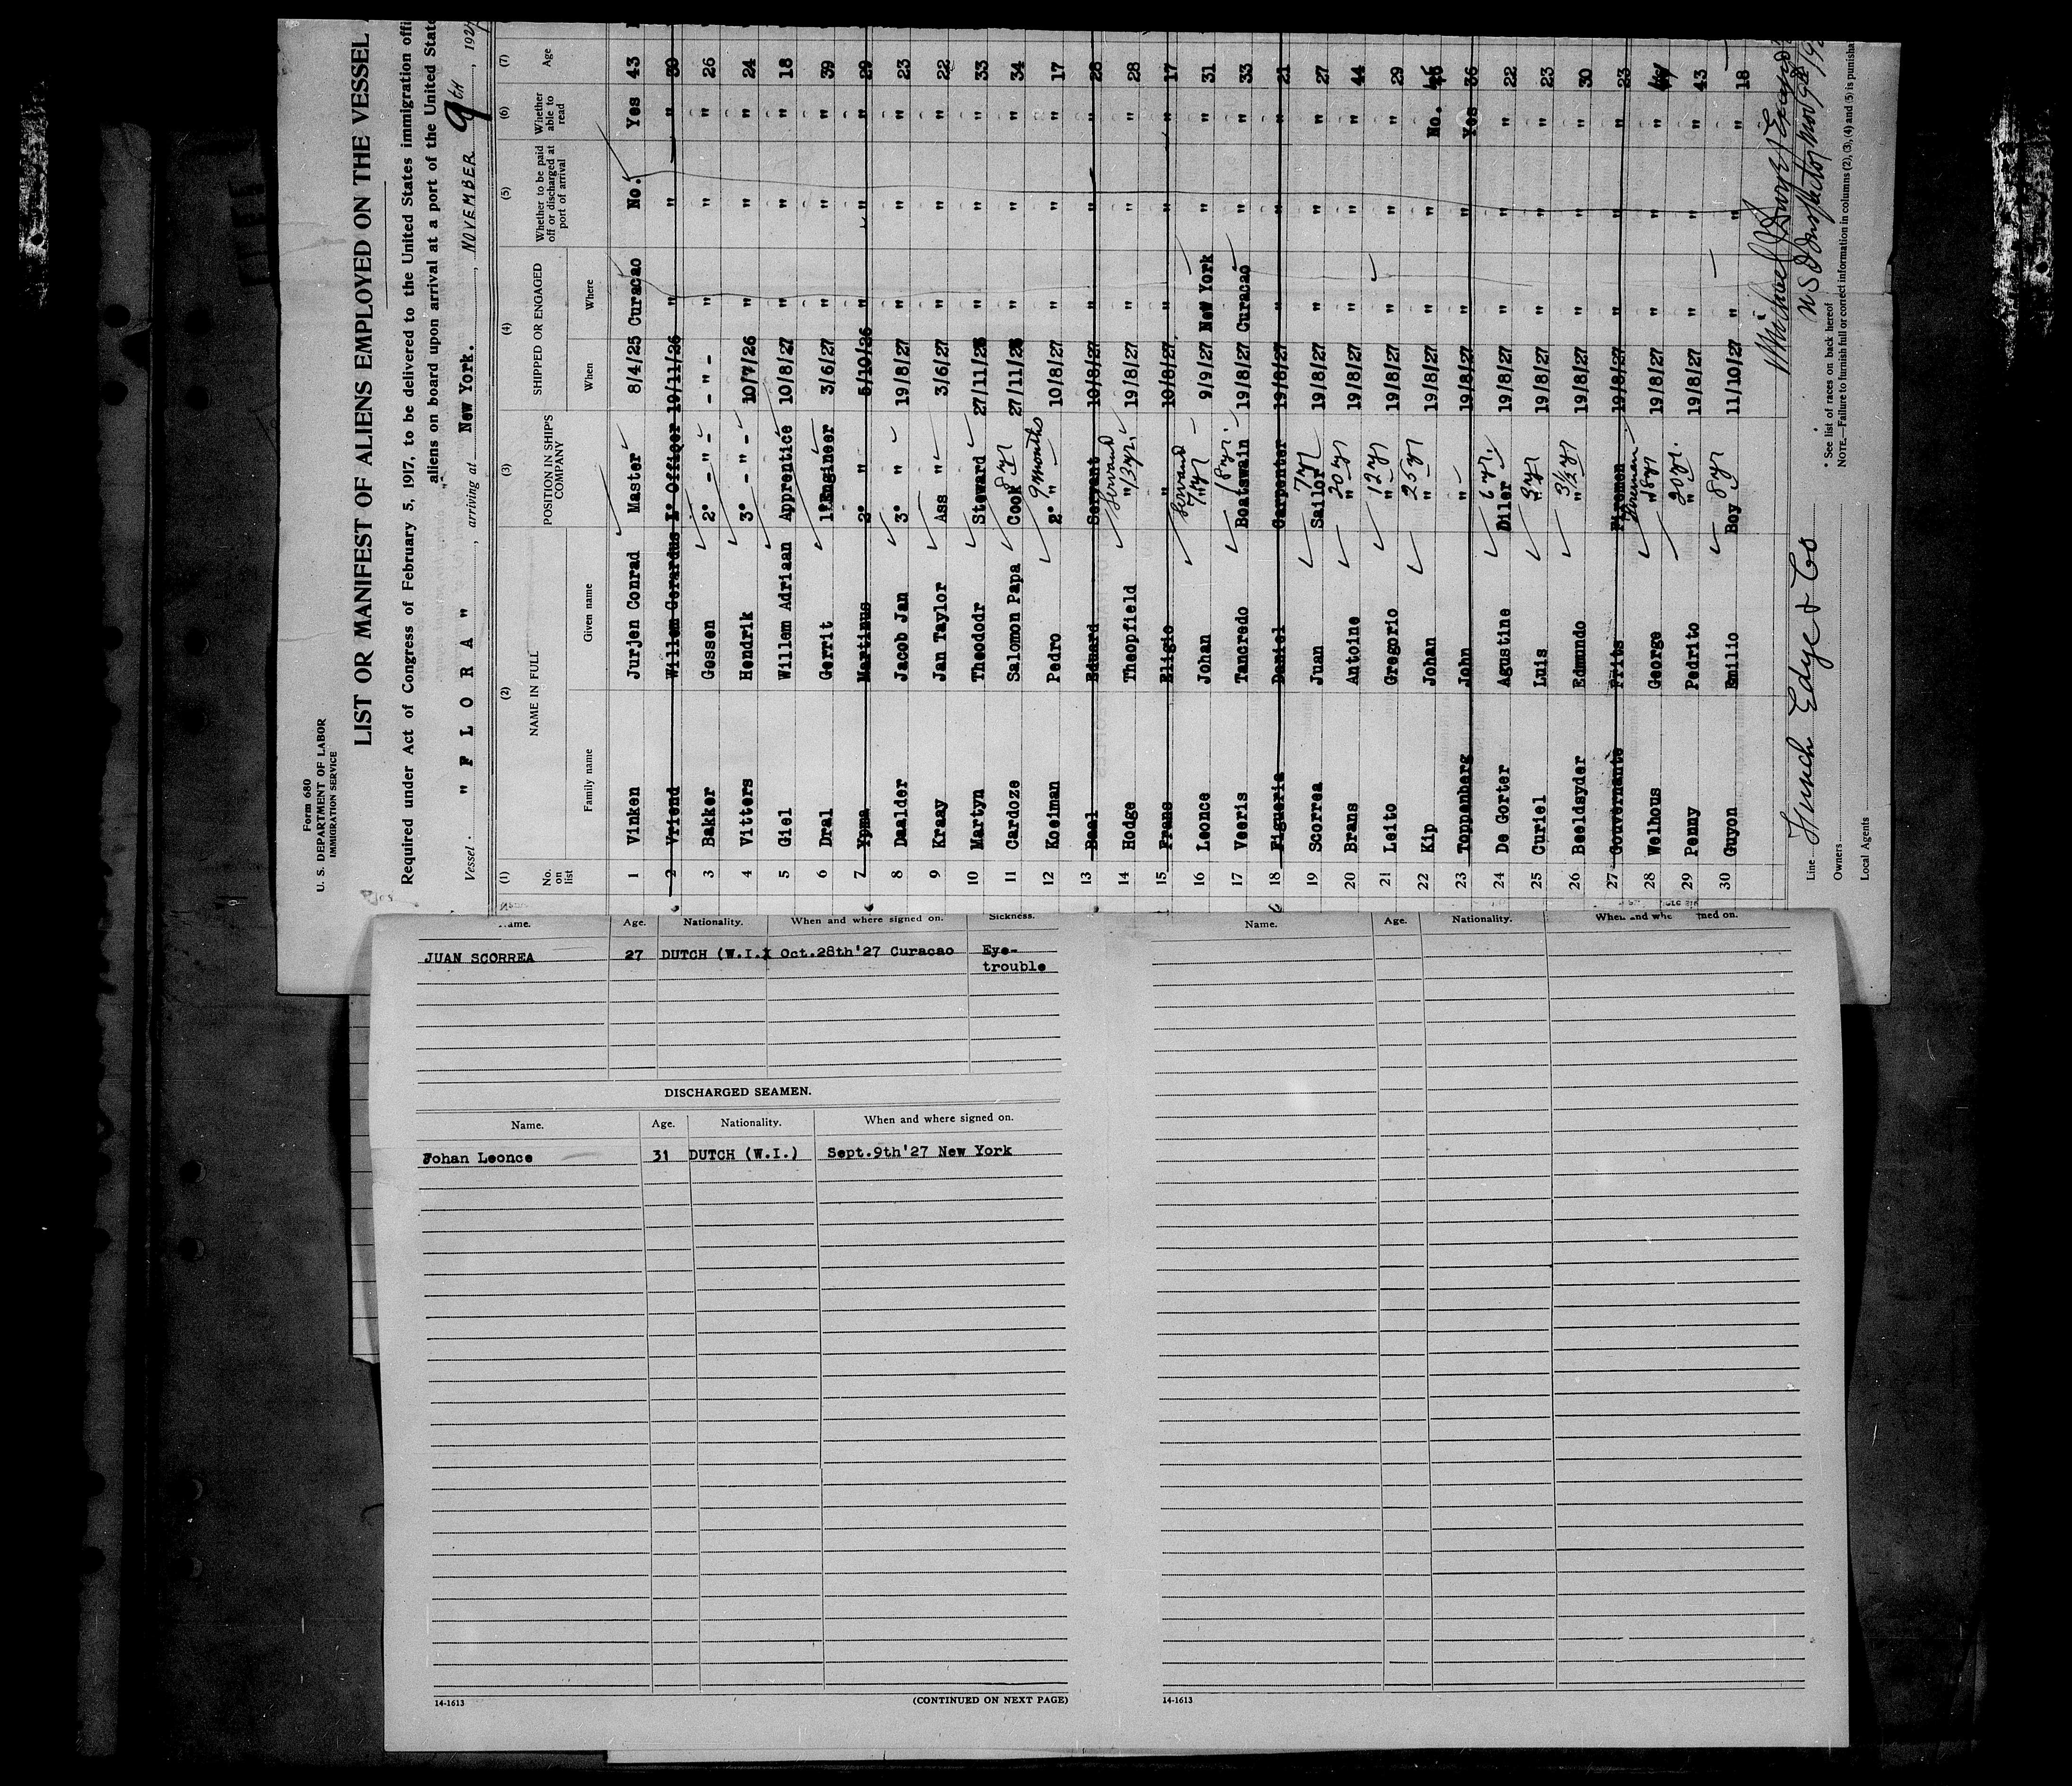 Form 680
U. S. DEPARTMENT OF LABOR
IMMIGRATION SERVICE
LIST OR MANIFEST OF ALIENS EMPLOYED ON THE VESSEL
Required under Act of Congress of February 5, 1917, to be delivered to the United States immigration offi
aliens on board upon arrival at a port of the United Stat
Vessel " F L O R A " , arriving at New York. , NOVEMBER 9th , 192
(1) (2) (3) (4) (5) (6) (7)
No. on list NAME IN FULL POSITION IN SHIP'S COMPANY SHIPPED OR ENGAGED Whether to be paid off or discharged at port of arrival Whether able to read Age
Family name Given name When Where
1 Vinken Jurjen Conrad Master 8/4/25 Curacao No. Yes 43
2 Vriend Willem Gerardus 1° Officer 19/11/26 " " " 30
3 Bakker Gossen 2° " - - " - " " " 26
4 Vitters Hendrik 3° - " - 10/7/26 " " " 24
5 Giel Willem Adriaan Apprentice 10/8/27 " " " 18
6 Dral Gerrit 1° Engineer 3/6/27 " " " 39
7 Ypma Martinus 2° " 5/10/26 " " " 29
8 Daalder Jacob Jan 3° " 19/8/27 " " " 23
9 Kraay Jan Taylor Ass " 3/6/27 " " " 22
10 Martyn Theododr Steward 27/11/26 " " " 33
11 Cardoze Salomon Papa Cook 8 yr 27/11/26 " " " 34
12 Koeiman Pedro 2° " 9 months 10/8/27 " " " 17
13 Baal Eduard Servant 10/8/27 " " " 28
14 Hodge Theopfield " Servand 13 yr. 19/8/27 " " " 28
15 Frans Eligio " 10/8/27 " " " 17
16 Leonce Johan " Servand 7 yr 9/9/27 New York " " 31
17 Veeris Tancredo Boatswain 18 yr. 19/8/27 Curacao " " 33
18 Figueria Daniel Carpenter 19/8/27 " " " 21
19 Scorrea Juan Sailor 7 yr 19/8/27 " " " 27
20 Brans Antoine " 20 yr 19/8/27 " " " 44
21 Leito Gregorio " 12 yr 19/8/27 " " " 29
22 Kip Johan " 25 yr 19/8/27 " " No.
23 Toppenberg John " 19/8/27 " " Yes 36
24 De Gorter Agustine Diler 6 yr. 19/8/27 " " " 22
25 Curiel Luis " 3 yr 19/8/27 " " " 23
26 Beeldsyder Edmundo " 3½ yr 19/8/27 " " " 30
27 Gouvernante Frits Firemen 19/8/27 " " " 23
28 Welhous George " Fireman 18 yr 19/8/27 " " "
29 Penny Pedrito " 20 yr. 19/8/27 " " " 43
30 Guyon Emilio Boy 8 yr 11/10/27 " " " 18
Line Funch Edye & Co
Owners
Local Agents
* See list of races on back hereof
NOTE.—Failure to furnish full or correct information in columns (2), (3), (4) and (5) is punisha
U S Inspector Nov 9th 192
Name. Age. Nationality. When and where signed on. Sickness.
JUAN SCORREA 27 DUTCH (W.I.) Oct.28th'27 Curacao Eye-
trouble
DISCHARGED SEAMEN.
Name. Age. Nationality. When and where signed on.
Johan Leonce 31 DUTCH (W.I.) Sept.9th'27 New York
14-1613 (CONTINUED ON NEXT PAGE)
Name. Age. Nationality. When and whe ned on.
14-1613